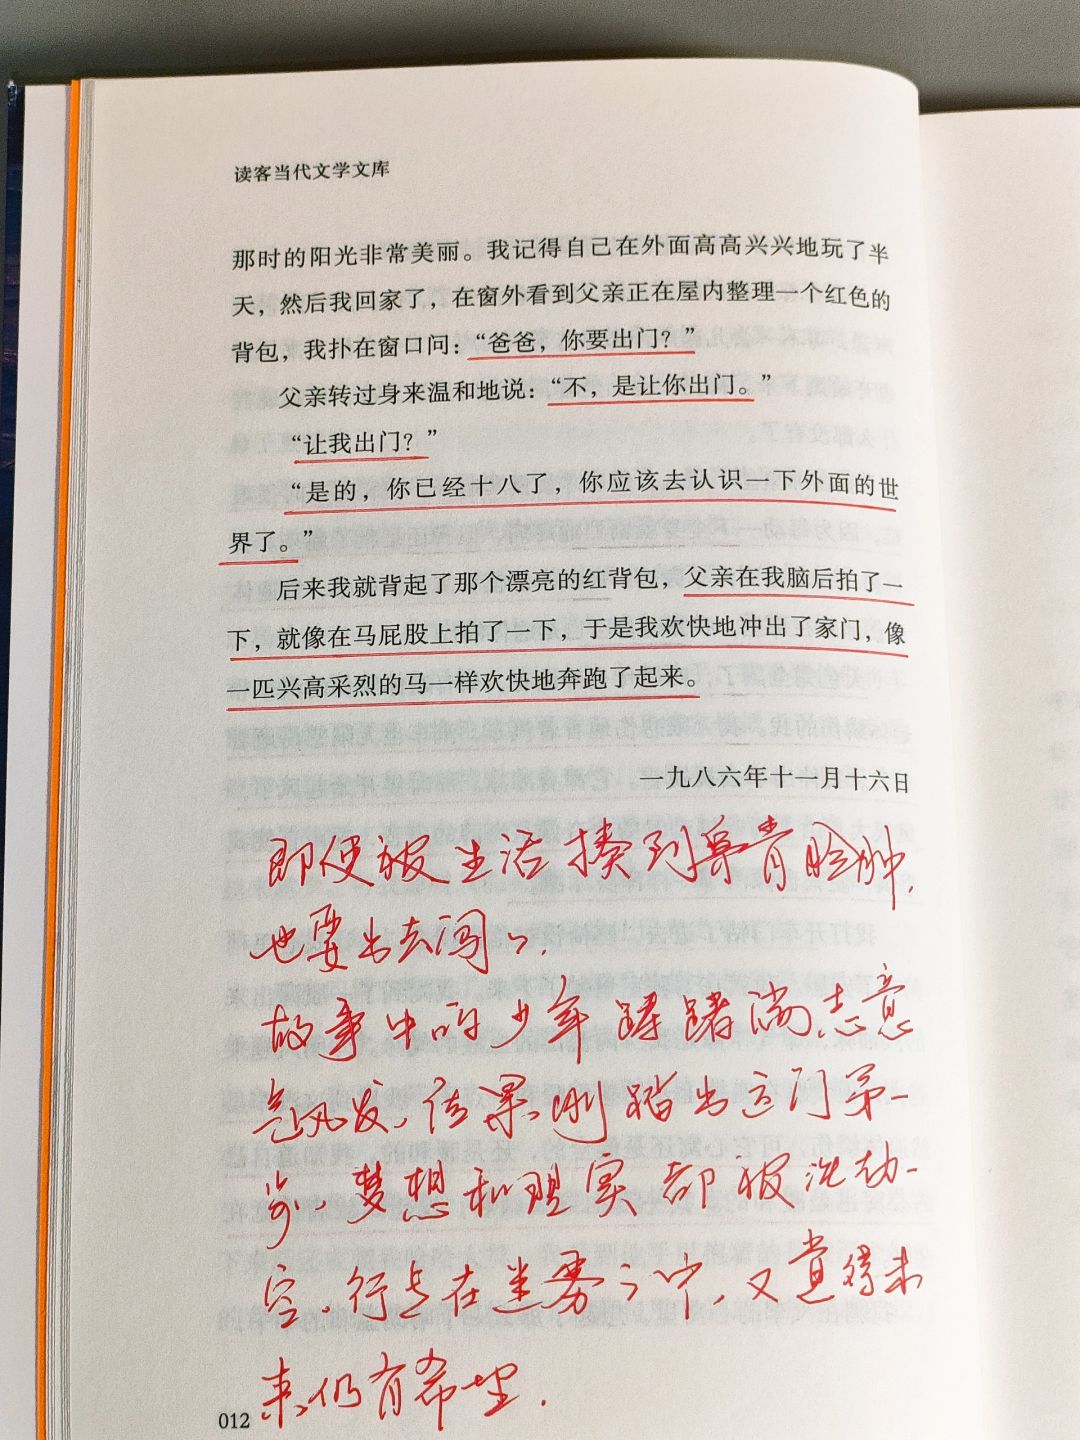 读客当代文学文库
那时的阳光非常美丽。我记得自己在外面高高兴兴地玩了半
天，然后我回家了，在窗外看到父亲正在屋内整理一个红色的
背包，我扑在窗口问：“爸爸，你要出门？”
父亲转过身来温和地说：“不，是让你出门。”
“让我出门？”
“是的，你已经十八了，你应该去认识一下外面的世
界了。”
后来我就背起了那个漂亮的红背包，父亲在我脑后拍了一
下，就像在马屁股上拍了一下，于是我欢快地冲出了家门，像
一匹兴高采烈的马一样欢快地奔跑了起来。
一九八六年十一月十六日
即使被生活揍到鼻青脸肿，
也要出去闯闯。
故事中的少年踌躇满志意
气风发，结果刚踏出远门第一
步，梦想和现实都被洗劫一
空，行走在迷雾之中，又觉得未
来仍有希望。
012